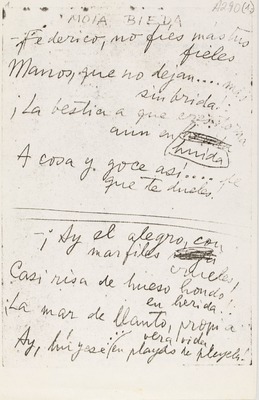 A290(1)
MOTA BIEDA
-Federico, no fies mas tus
fieles
Manos, que no dejan....
sin brida.
¡La bestia a que
aun en
huida
A cosa y goce asi....
que te dueles.
-¡Ay el alegro, con
marfiles
crueles,
Casi risa de hueso hondo!
en herida..
¡La mar de llanto, propia
vera vida
Ay, húyese! (en playas de pleyeles!